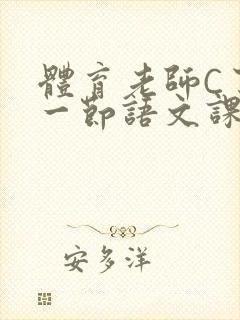 體育老師C
一節語文課
安多洋